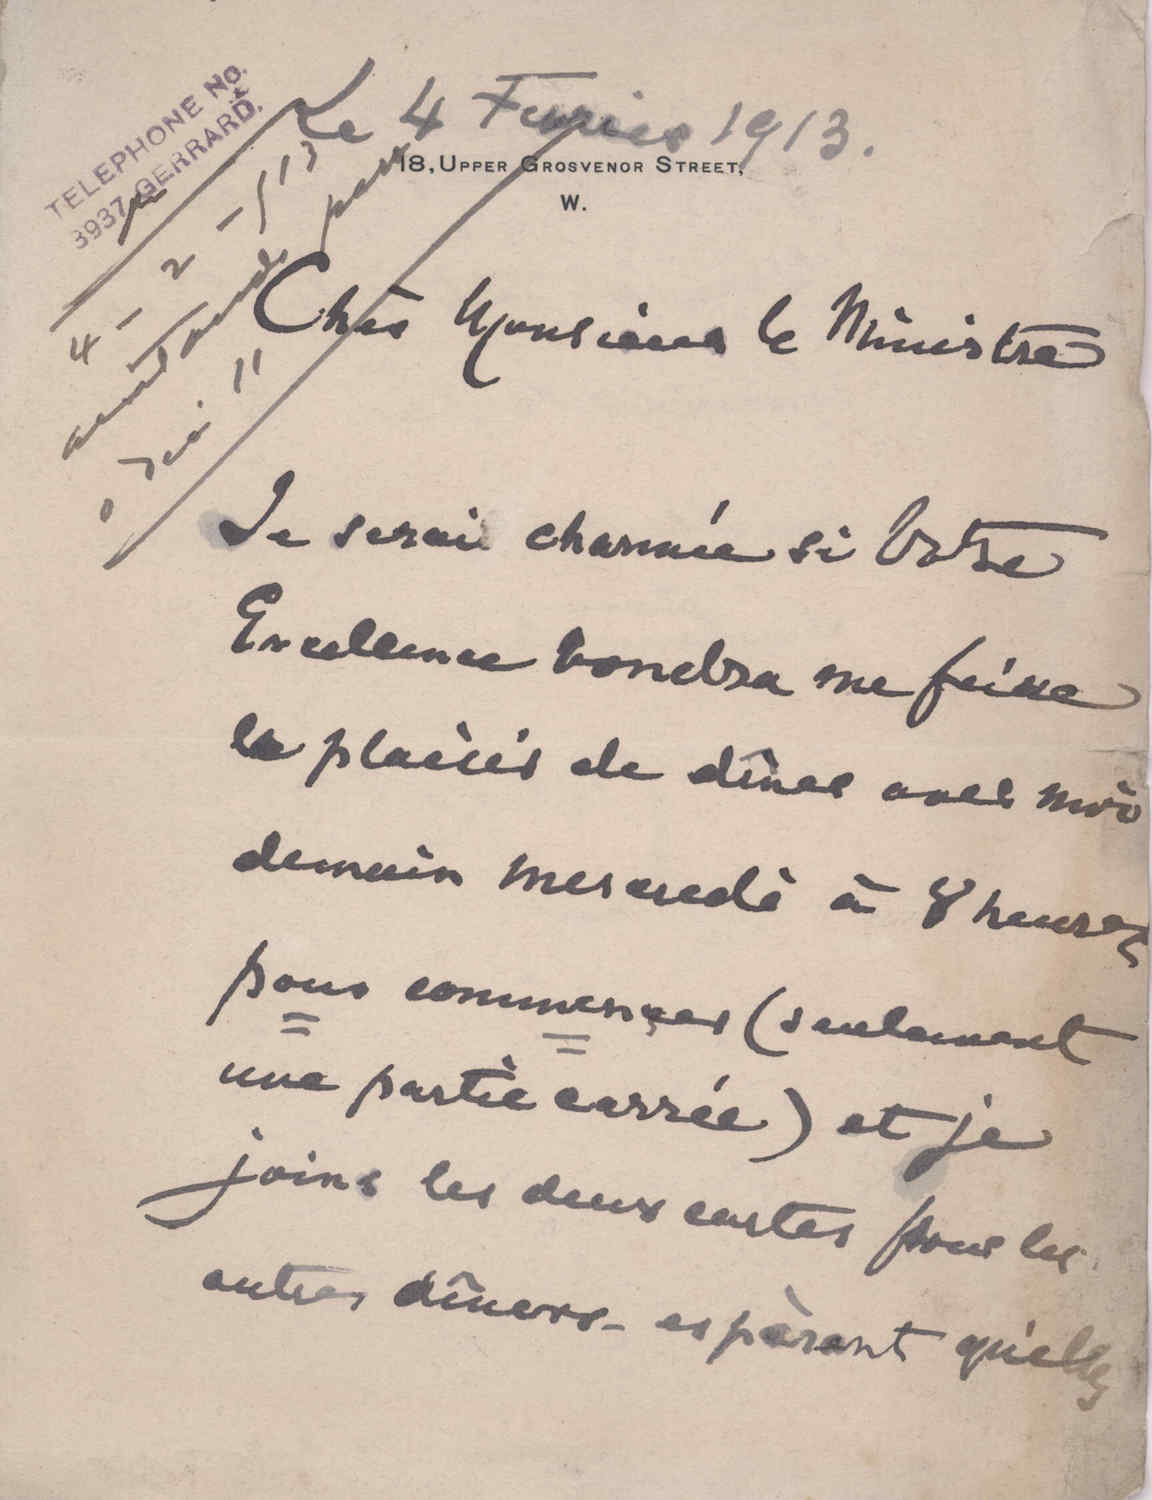 TELEPHONE No.
3937 GERRARD.
Le 4 Fevrier 1913.
18, UPPER GROSVENOR STREET,
W.
4 - 2 - 13
Cher Monsieur le Ministre
Je serai charmée si Votre
Excellence voudra me faire
le plaisir de dîner avec moi
demain mercredi à 8 heures
pour commencer (seulement
une partie carrée) et je
joins les deux cartes pour les
autres dîners - espèrant qu'elles